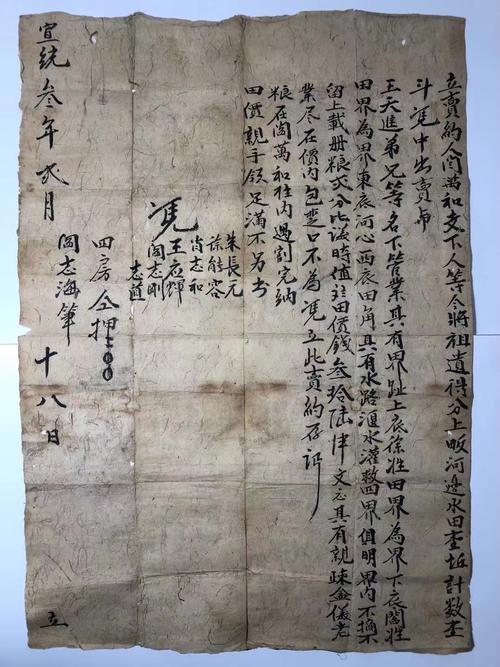 立賣約人閻萬和支下人等今將祖遺得分上畈河邊水田壹坵計數壹
斗凴中出賣而
王天進弟兄等名下管業其有界趾上底徐姓田界為界下底閻姓
田界為界東底河心西底田角具有水路滙水灌救四界俱明界内不換不
留上載册粮弍分比淂時值田價錢叁拾陆文正具有親疎金儀老
業尽在價内包楚口不為凴立此賣約存
粮在閻萬和柱内過割完納
田價親手領足滿不另書
凴
朱長元
徐能容
肖志和
王在輝
閻志剛
志道
四房仝押
閻志海筆
宣統叁年弍月十八日立